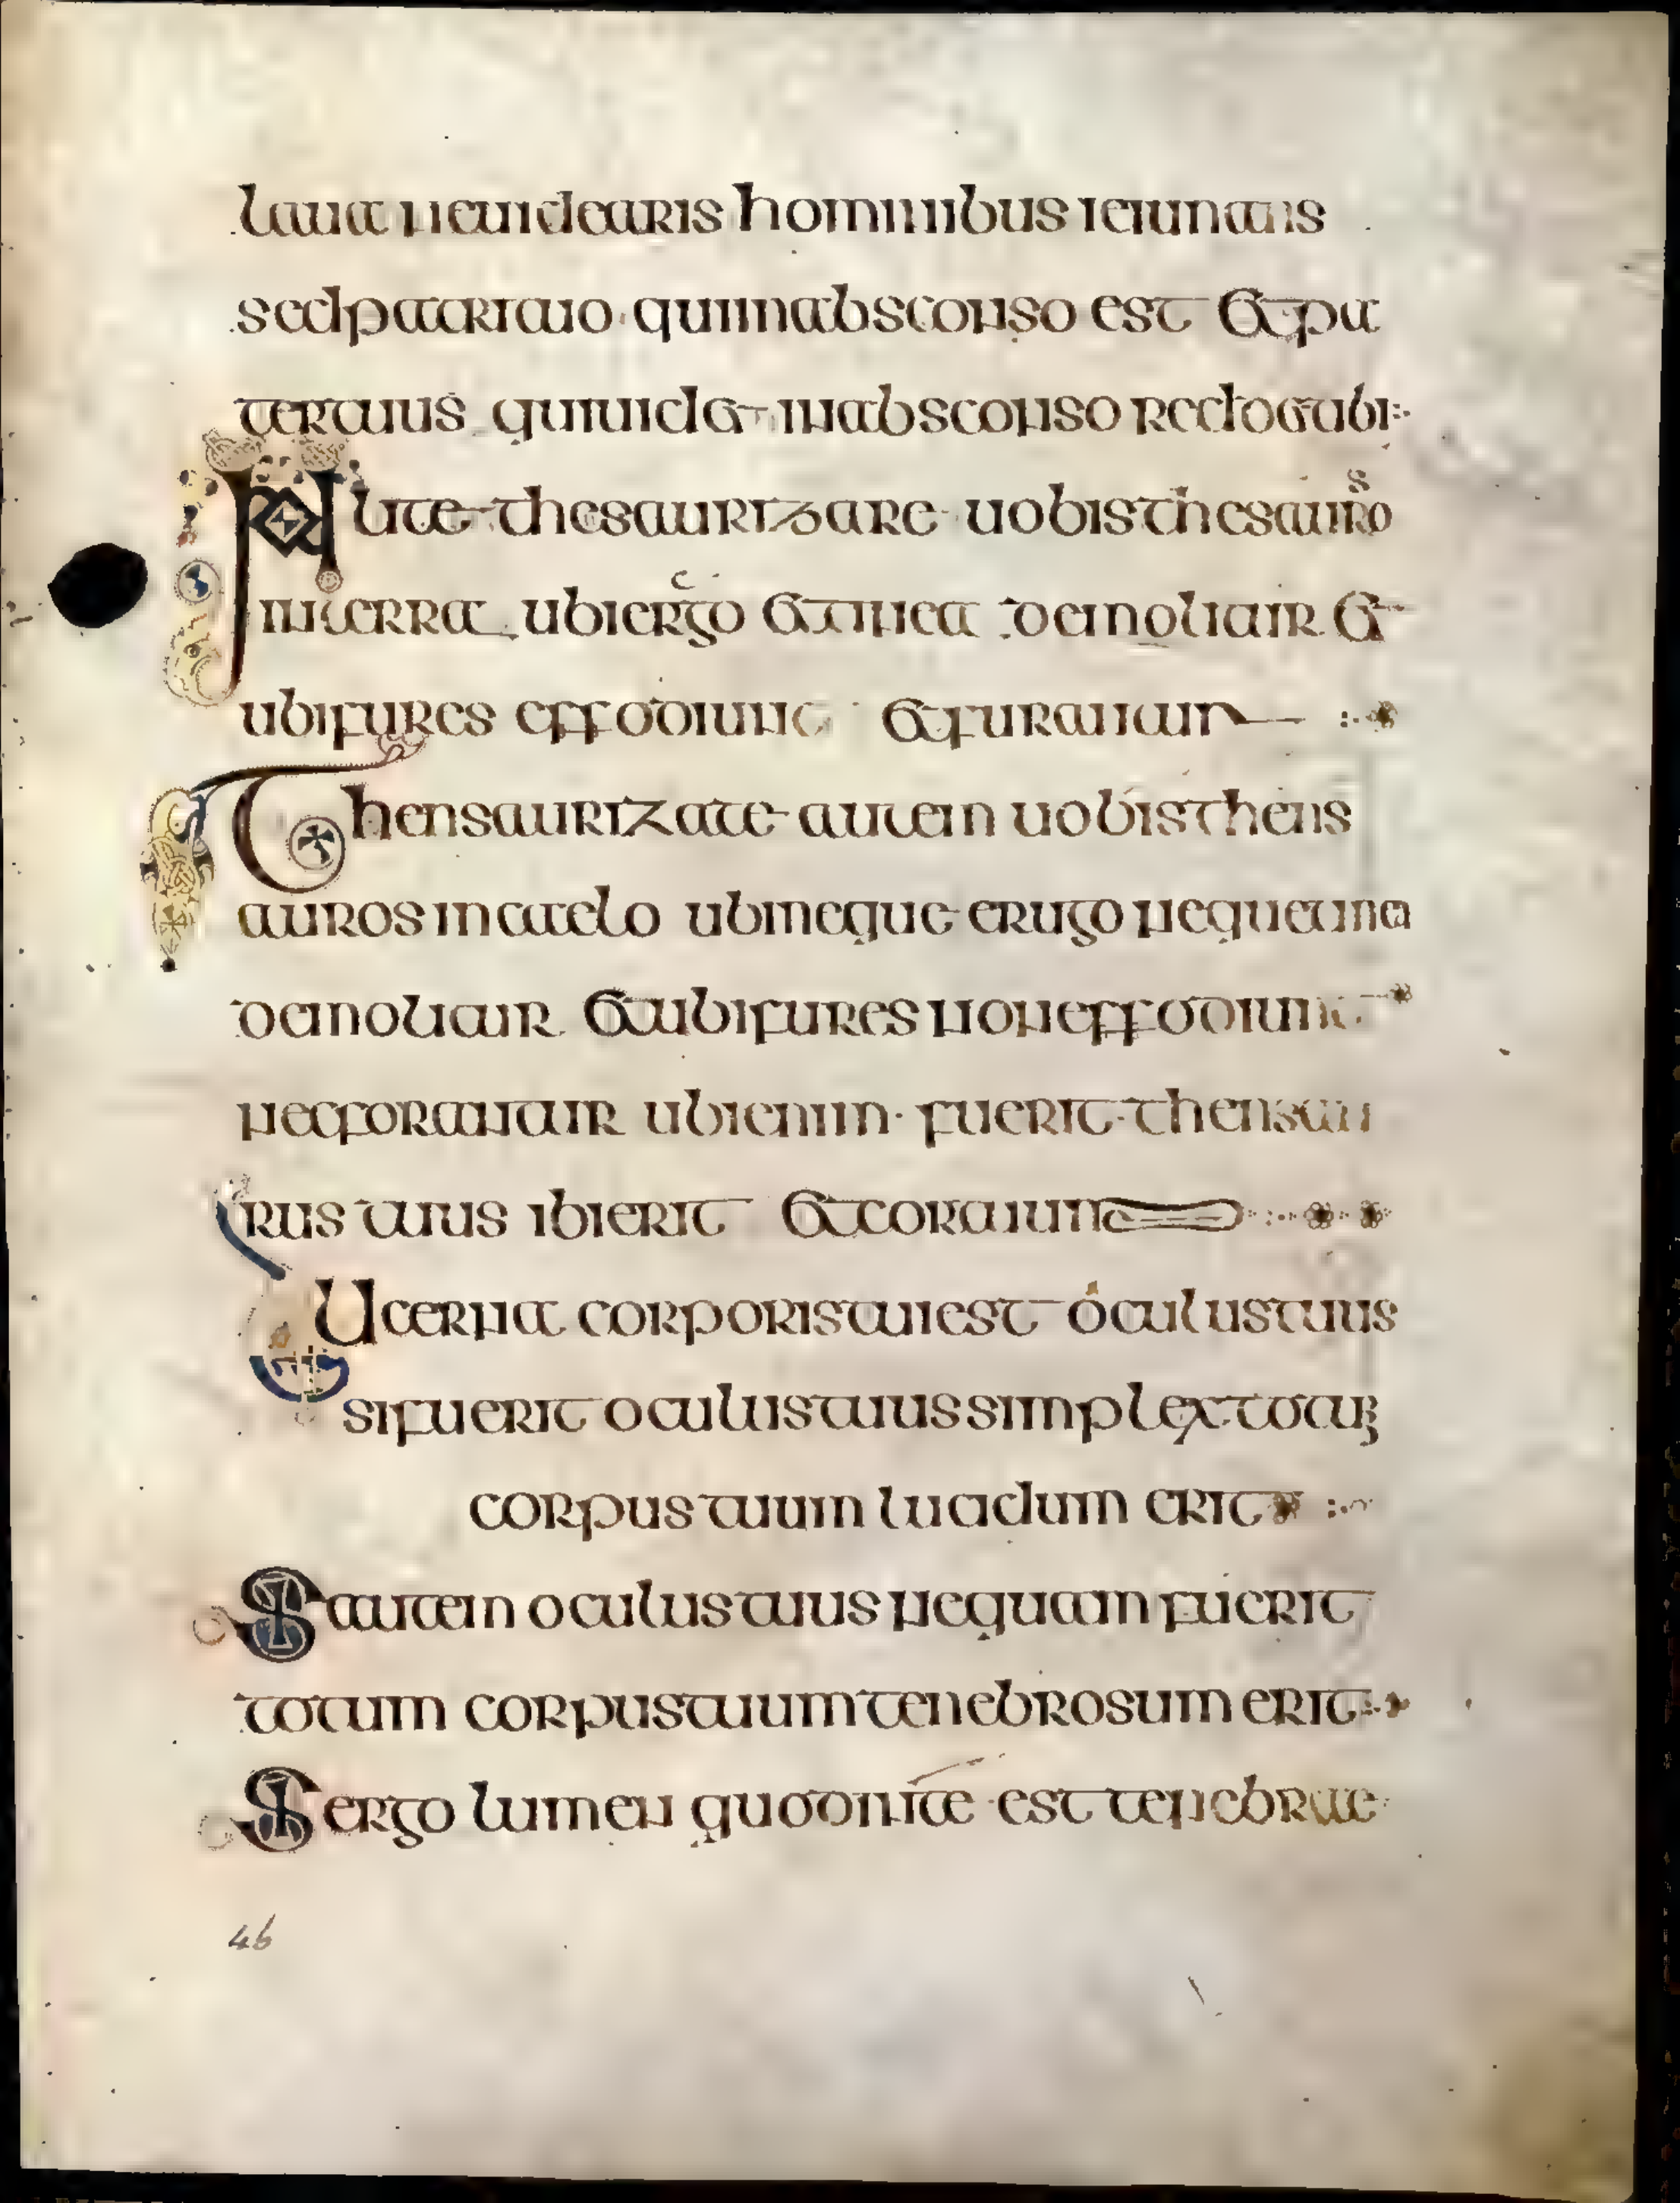 laua ne uidearis hominibus ieiunans
sed patri tuo qui in absconso est et pa
ter tuus qui uidet in absconso reddet tibi
Nolite thesaurizare uobis thesauros
in terra ubi ergo et tinea demolitur et
ubi fures effodiunt et furantur
Thensaurizate autem uobis thens
auros in caelo ubi neque erugo neque tinea
demolitur et ubi fures non effodiunt
nec forantur ubi enim fuerit thensau
rus tuus ibi erit et cor tuum
Lucerna corporis tui est oculus tuus
si fuerit oculus tuus simplex totum
corpus tuum lucidum erit
Si autem oculus tuus nequam fuerit
totum corpus tuum tenebrosum erit
Si ergo lumen quod in te est tenebrae
46